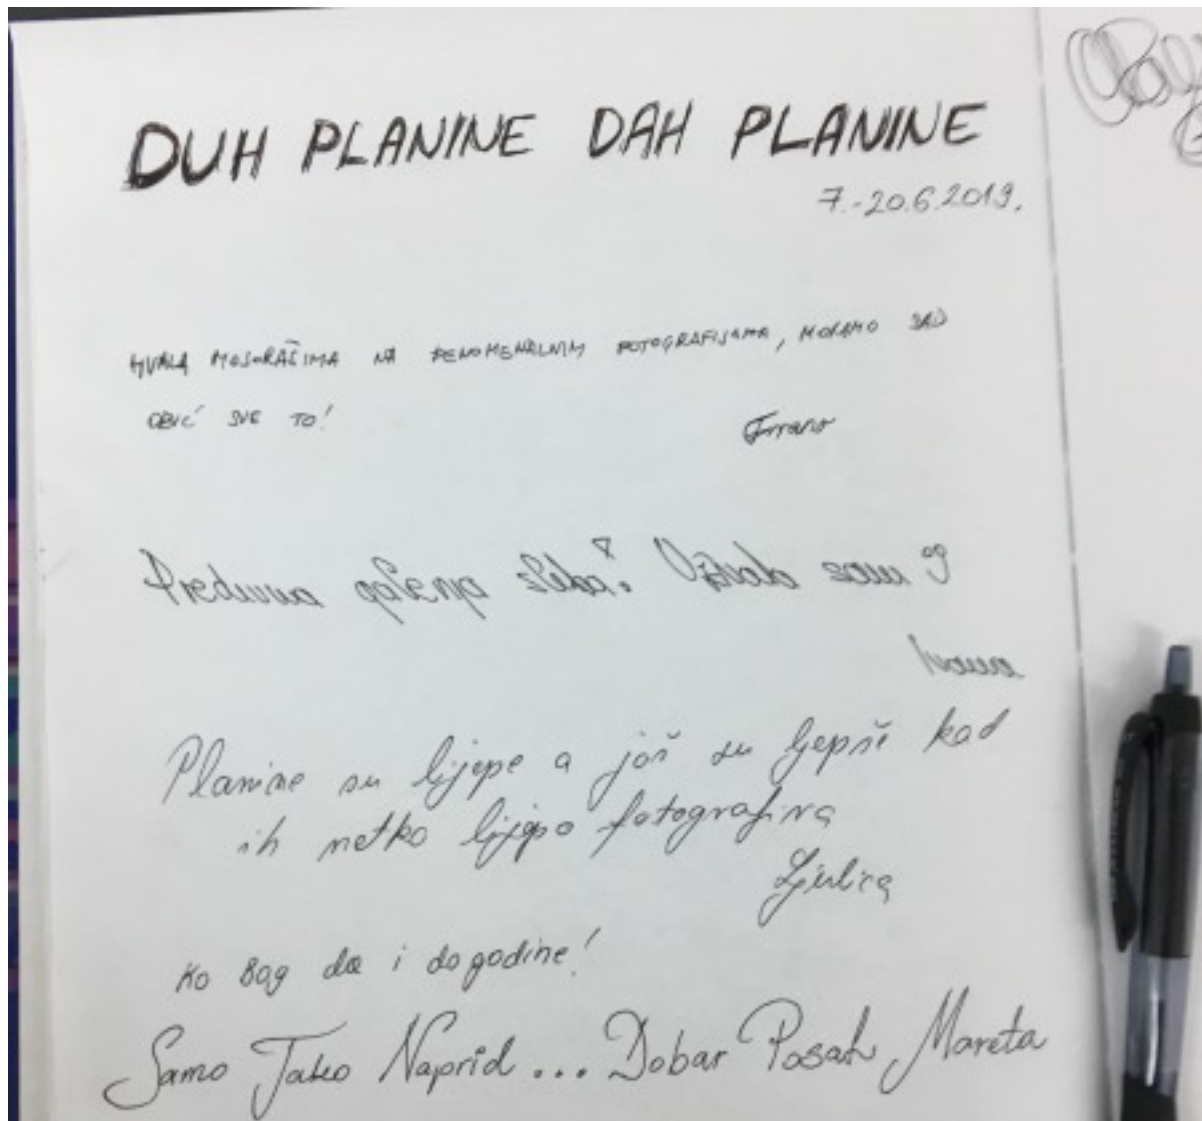 DUH PLANINE DAH PLANINE
7.-20.6.2019.
HVALA MOSORAŠIMA NA FENOMENALNIM FOTOGRAFIJAMA, MORAMO SAD
OBIĆ SVE TO!
Frano
Predivna galerija slika! Uživala sam
Ivana
Planine su lijepe a još su ljepše kad
ih netko lijepo fotografira
Ljulica
Ko Bog da i dogodine!
Samo Tako Naprid... Dobar Posah Mareta